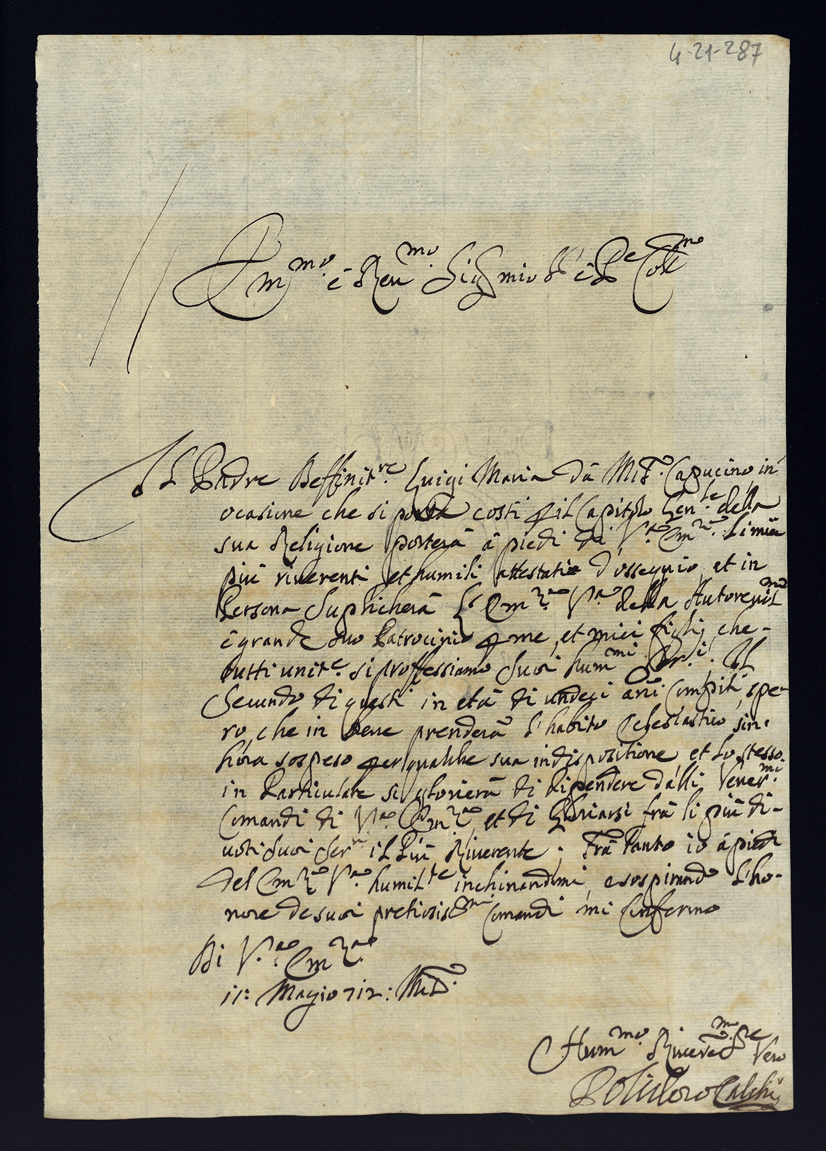 4-21-287
Em.mo e Reu.mo Sig.r mio S.r e P.e Coll.mo
Il Padre Deffinit.re Luigi Maria dà Mil.o Capucino in
ocasione che si porta costì p il Capitolo Gen.le della
sua Religione porterà à piedi di V.ra Em.za li miei
più riuerenti et humili attestati d'ossequio, et in
Persona suplicherà l'Em.za V.ra della Autoreuol.ma
è grande suo Patrocinio p me, et miei figlij che
tutti unit.e si proffessiamo suoi hum.mi Ser.i Il
Secundo di questi in età di undeci ani compiti spe-
ro che in breue prenderà l'habito Eclesiastico, sin'
hora sospeso per qualche sua indispositione et lo stesso
in Particulare si glorierà di dipendere dalli Vener.mi
Comandi di V.ra Em.za, et di Gloriarsi frà li più di-
uoti suoi Ser.ri il Più Riuerente. Frà tanto io à piedi
del Em.za V.ra humil.te inchinandomi, e sospirando l'ho-
nore de suoi pretiosis.mi Comandi mi Confermo
Di V.ra Em.za
11: Magio 712: Mil.o
Hum.mo Riuer.mo Se.re Vero
Polidoro Calchi